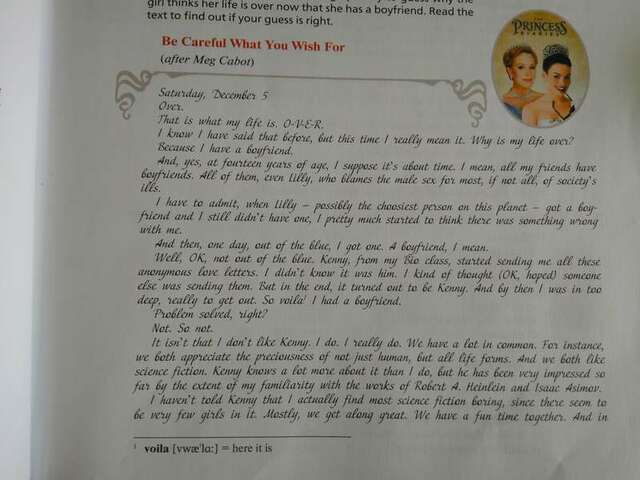 girl thinks her life is over now that she has a boyfriend. Read the
text to find out if your guess is right.
THE
PRINCESS
DIARIES
Be Careful What You Wish For
(after Meg Cabot)
Saturday, December 5
Over.
That is what my life is. O-V-E-R.
I know I have said that before, but this time I really mean it. Why is my life over?
Because I have a boyfriend.
And, yes, at fourteen years of age, I suppose it's about time. I mean, all my friends have
boyfriends. All of them, even Lilly, who blames the male sex for most, if not all, of society's
ills.
I have to admit, when Lilly – possibly the choosiest person on this planet – got a boy-
friend and I still didn't have one, I pretty much started to think there was something wrong
with me.
And then, one day, out of the blue, I got one. A boyfriend, I mean.
Well, OK, not out of the blue. Kenny, from my Bio class, started sending me all these
anonymous love letters. I didn't know it was him. I kind of thought (OK, hoped) someone
else was sending them. But in the end, it turned out to be Kenny. And by then I was in too
deep, really to get out. So voila¹ I had a boyfriend.
Problem solved, right?
Not. So not.
It isn't that I don't like Kenny. I do. I really do. We have a lot in common. For instance,
we both appreciate the preciousness of not just human, but all life forms. And we both like
science fiction. Kenny knows a lot more about it than I do, but he has been very impressed so
far by the extent of my familiarity with the works of Robert A. Heinlein and Isaac Asimov.
I haven't told Kenny that I actually find most science fiction boring, since there seem to
be very few girls in it. Mostly, we get along great. We have a fun time together. And in
¹ voila [vwæ'lɑ:] = here it is